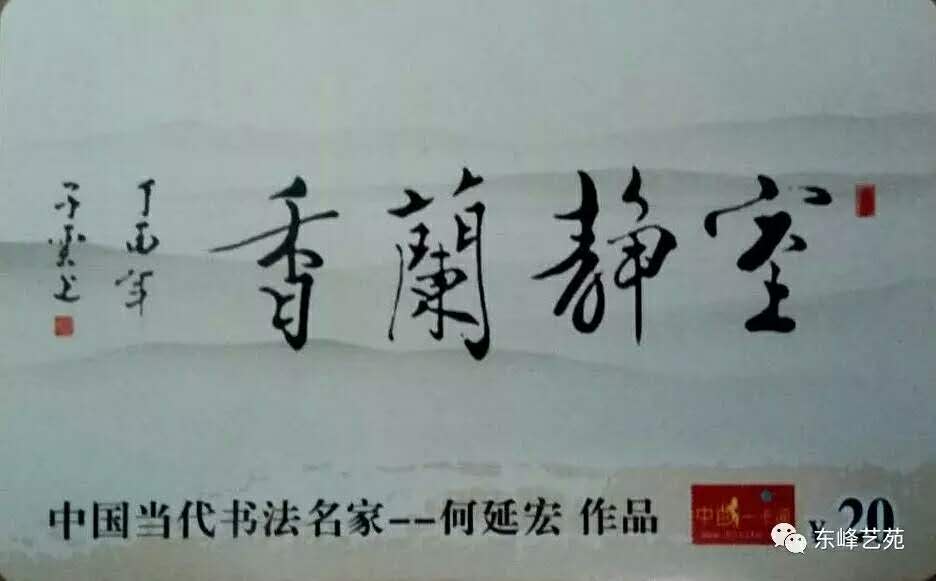 室靜蘭香
丁酉年
中国当代书法名家--何延宏 作品
中国一卡通
¥20
东峰艺苑